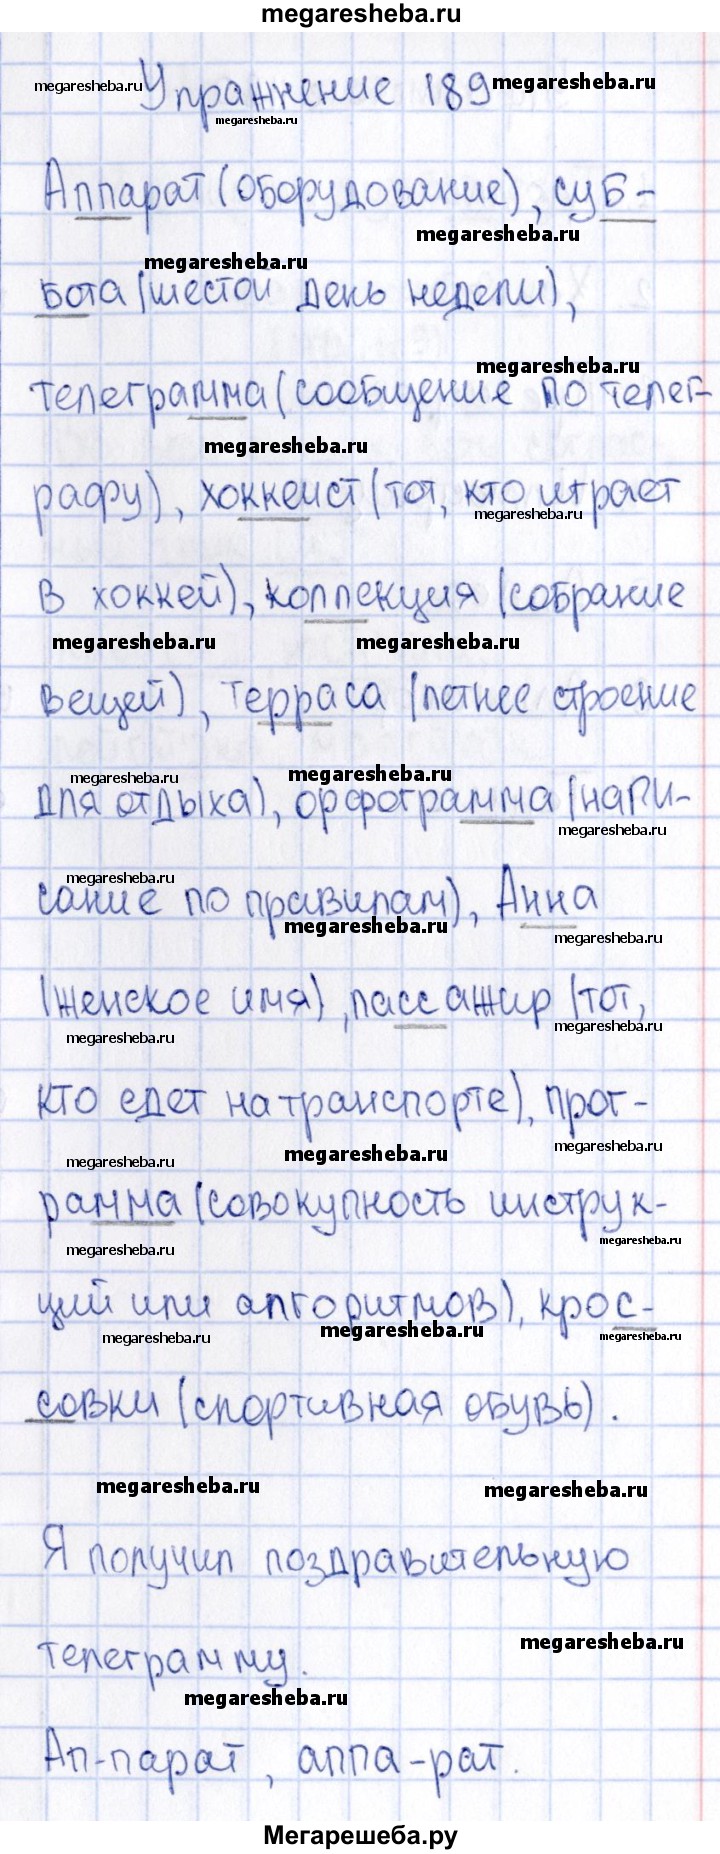 megaresheba.ru
Упражнение 189
megaresheba.ru megaresheba.ru
megaresheba.ru
Аппарат (оборудование), суб-
megaresheba.ru
megaresheba.ru
бота (шестой день недели),
megaresheba.ru
телеграмма (сообщение по телег-
megaresheba.ru
рафу), хоккеист (тот, кто играет
megaresheba.ru
в хоккей), коллекция (собрание
megaresheba.ru megaresheba.ru
вещей), терраса (летнее строение
megaresheba.ru megaresheba.ru
для отдыха), орфограмма (напи-
megaresheba.ru
megaresheba.ru
сание по правилам), Анна
megaresheba.ru
megaresheba.ru
(женское имя), пассажир (тот,
megaresheba.ru megaresheba.ru
кто едет на транспорте), прог-
megaresheba.ru megaresheba.ru megaresheba.ru
рамма (совокупность инструк-
megaresheba.ru megaresheba.ru
ций или алгоритмов), крос-
megaresheba.ru megaresheba.ru megaresheba.ru
совки (спортивная обувь).
megaresheba.ru megaresheba.ru
Я получил поздравительную
megaresheba.ru
телеграмму.
megaresheba.ru
Ап-парат, аппа-рат.
Мегарешеба.ру